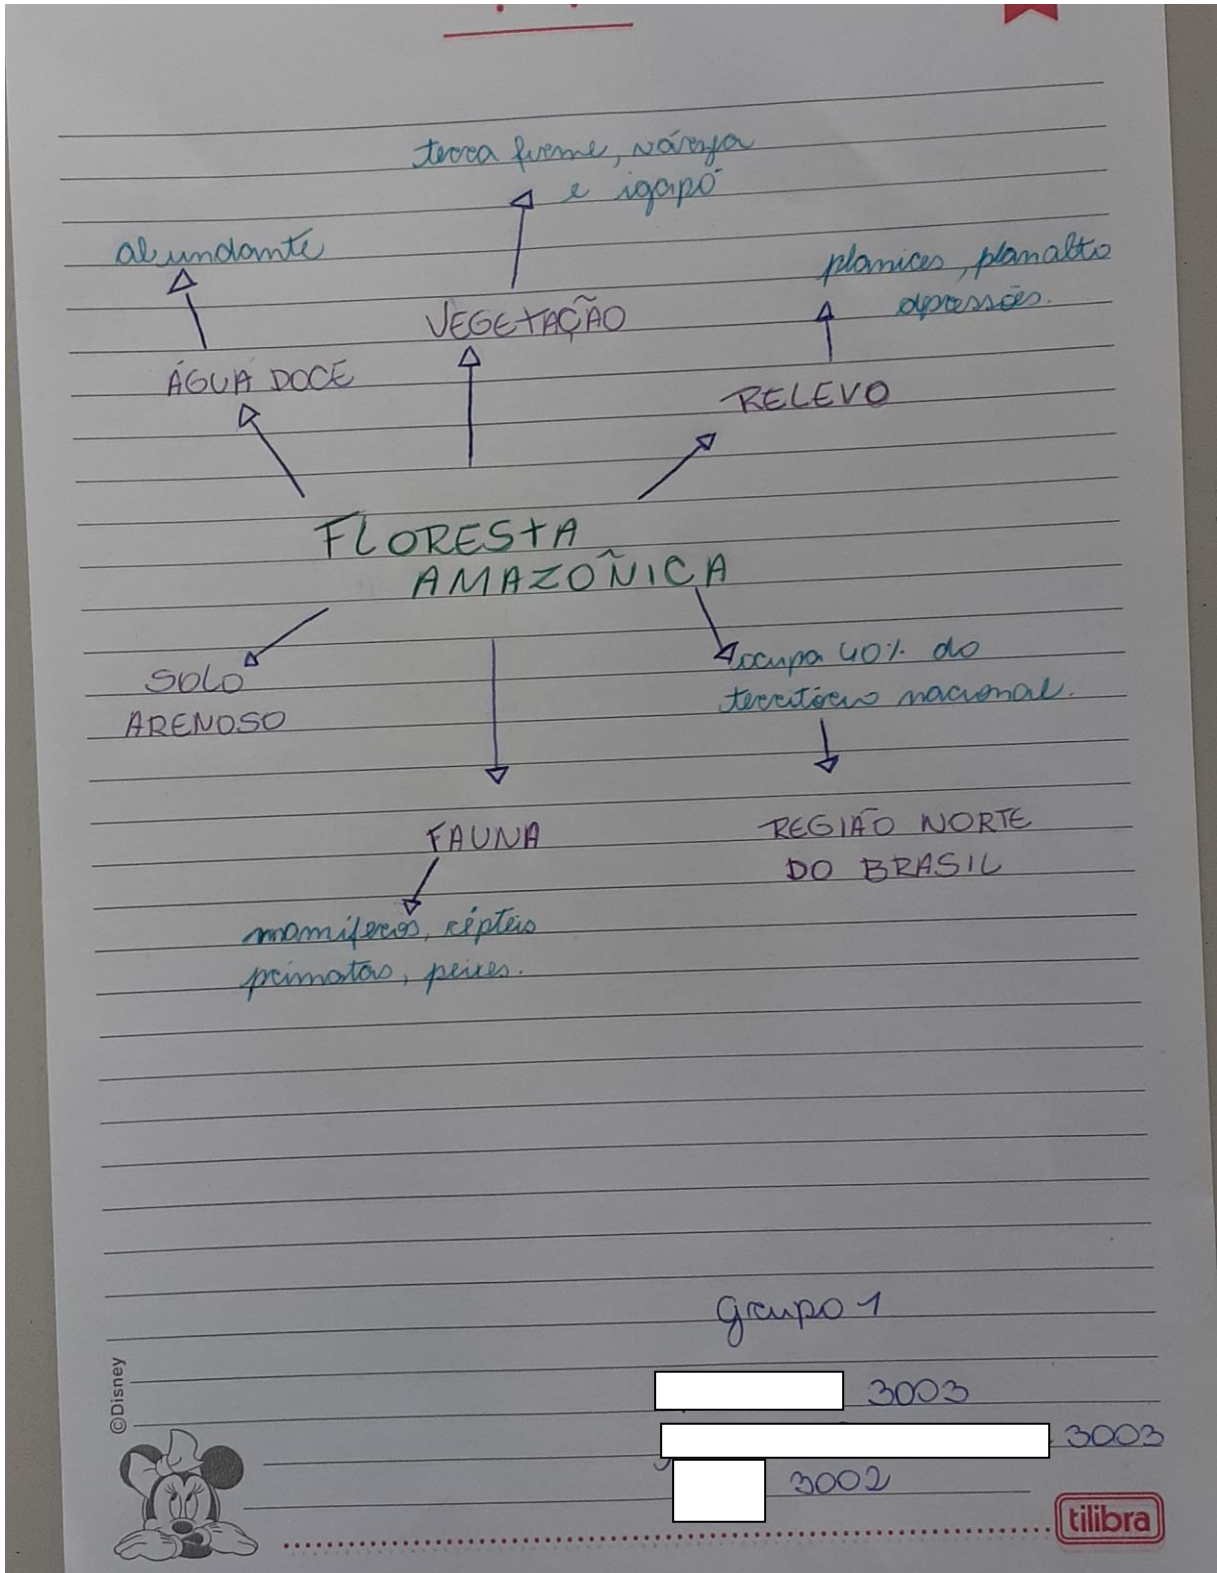 terra firme, várzea
e igapó
abundante
planices, planalto
depressões.
VEGETAÇÃO
ÁGUA DOCE
RELEVO
FLORESTA
AMAZÔNICA
ocupa 40% do
território nacional.
SOLO
ARENOSO
FAUNA
REGIÃO NORTE
DO BRASIL
mamíferos, répteis
primatas, peixes.
grupo 1
3003
3003
3002
©Disney
tilibra